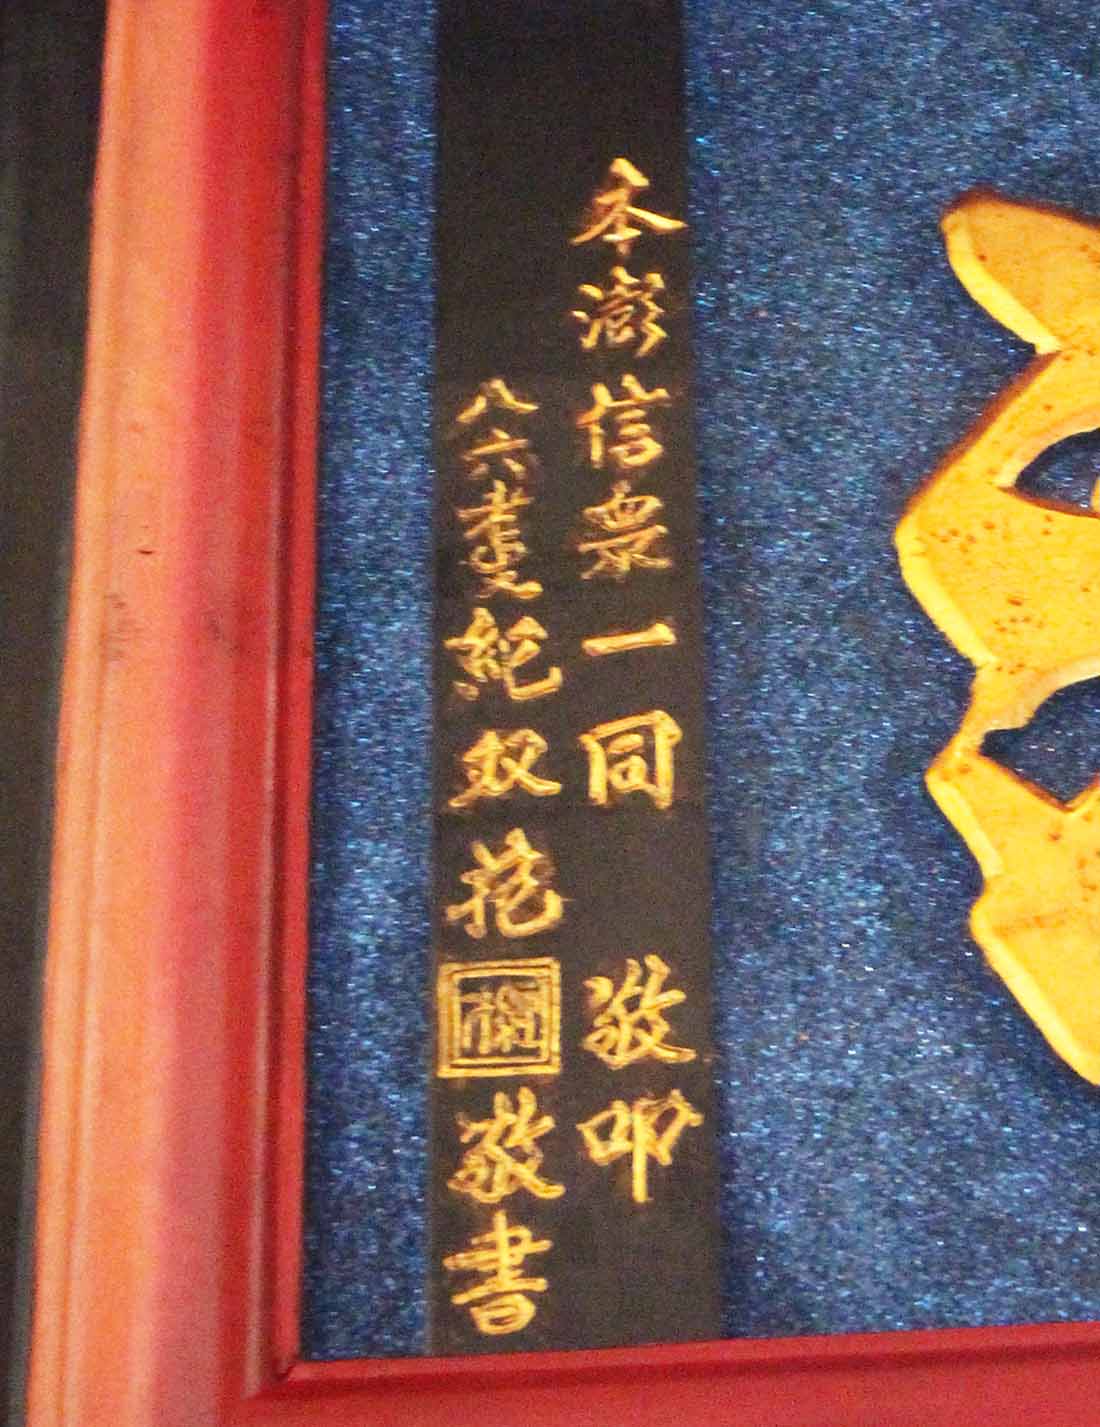 本澎信眾一同 敬叩
八六老叟紀双抱敬書